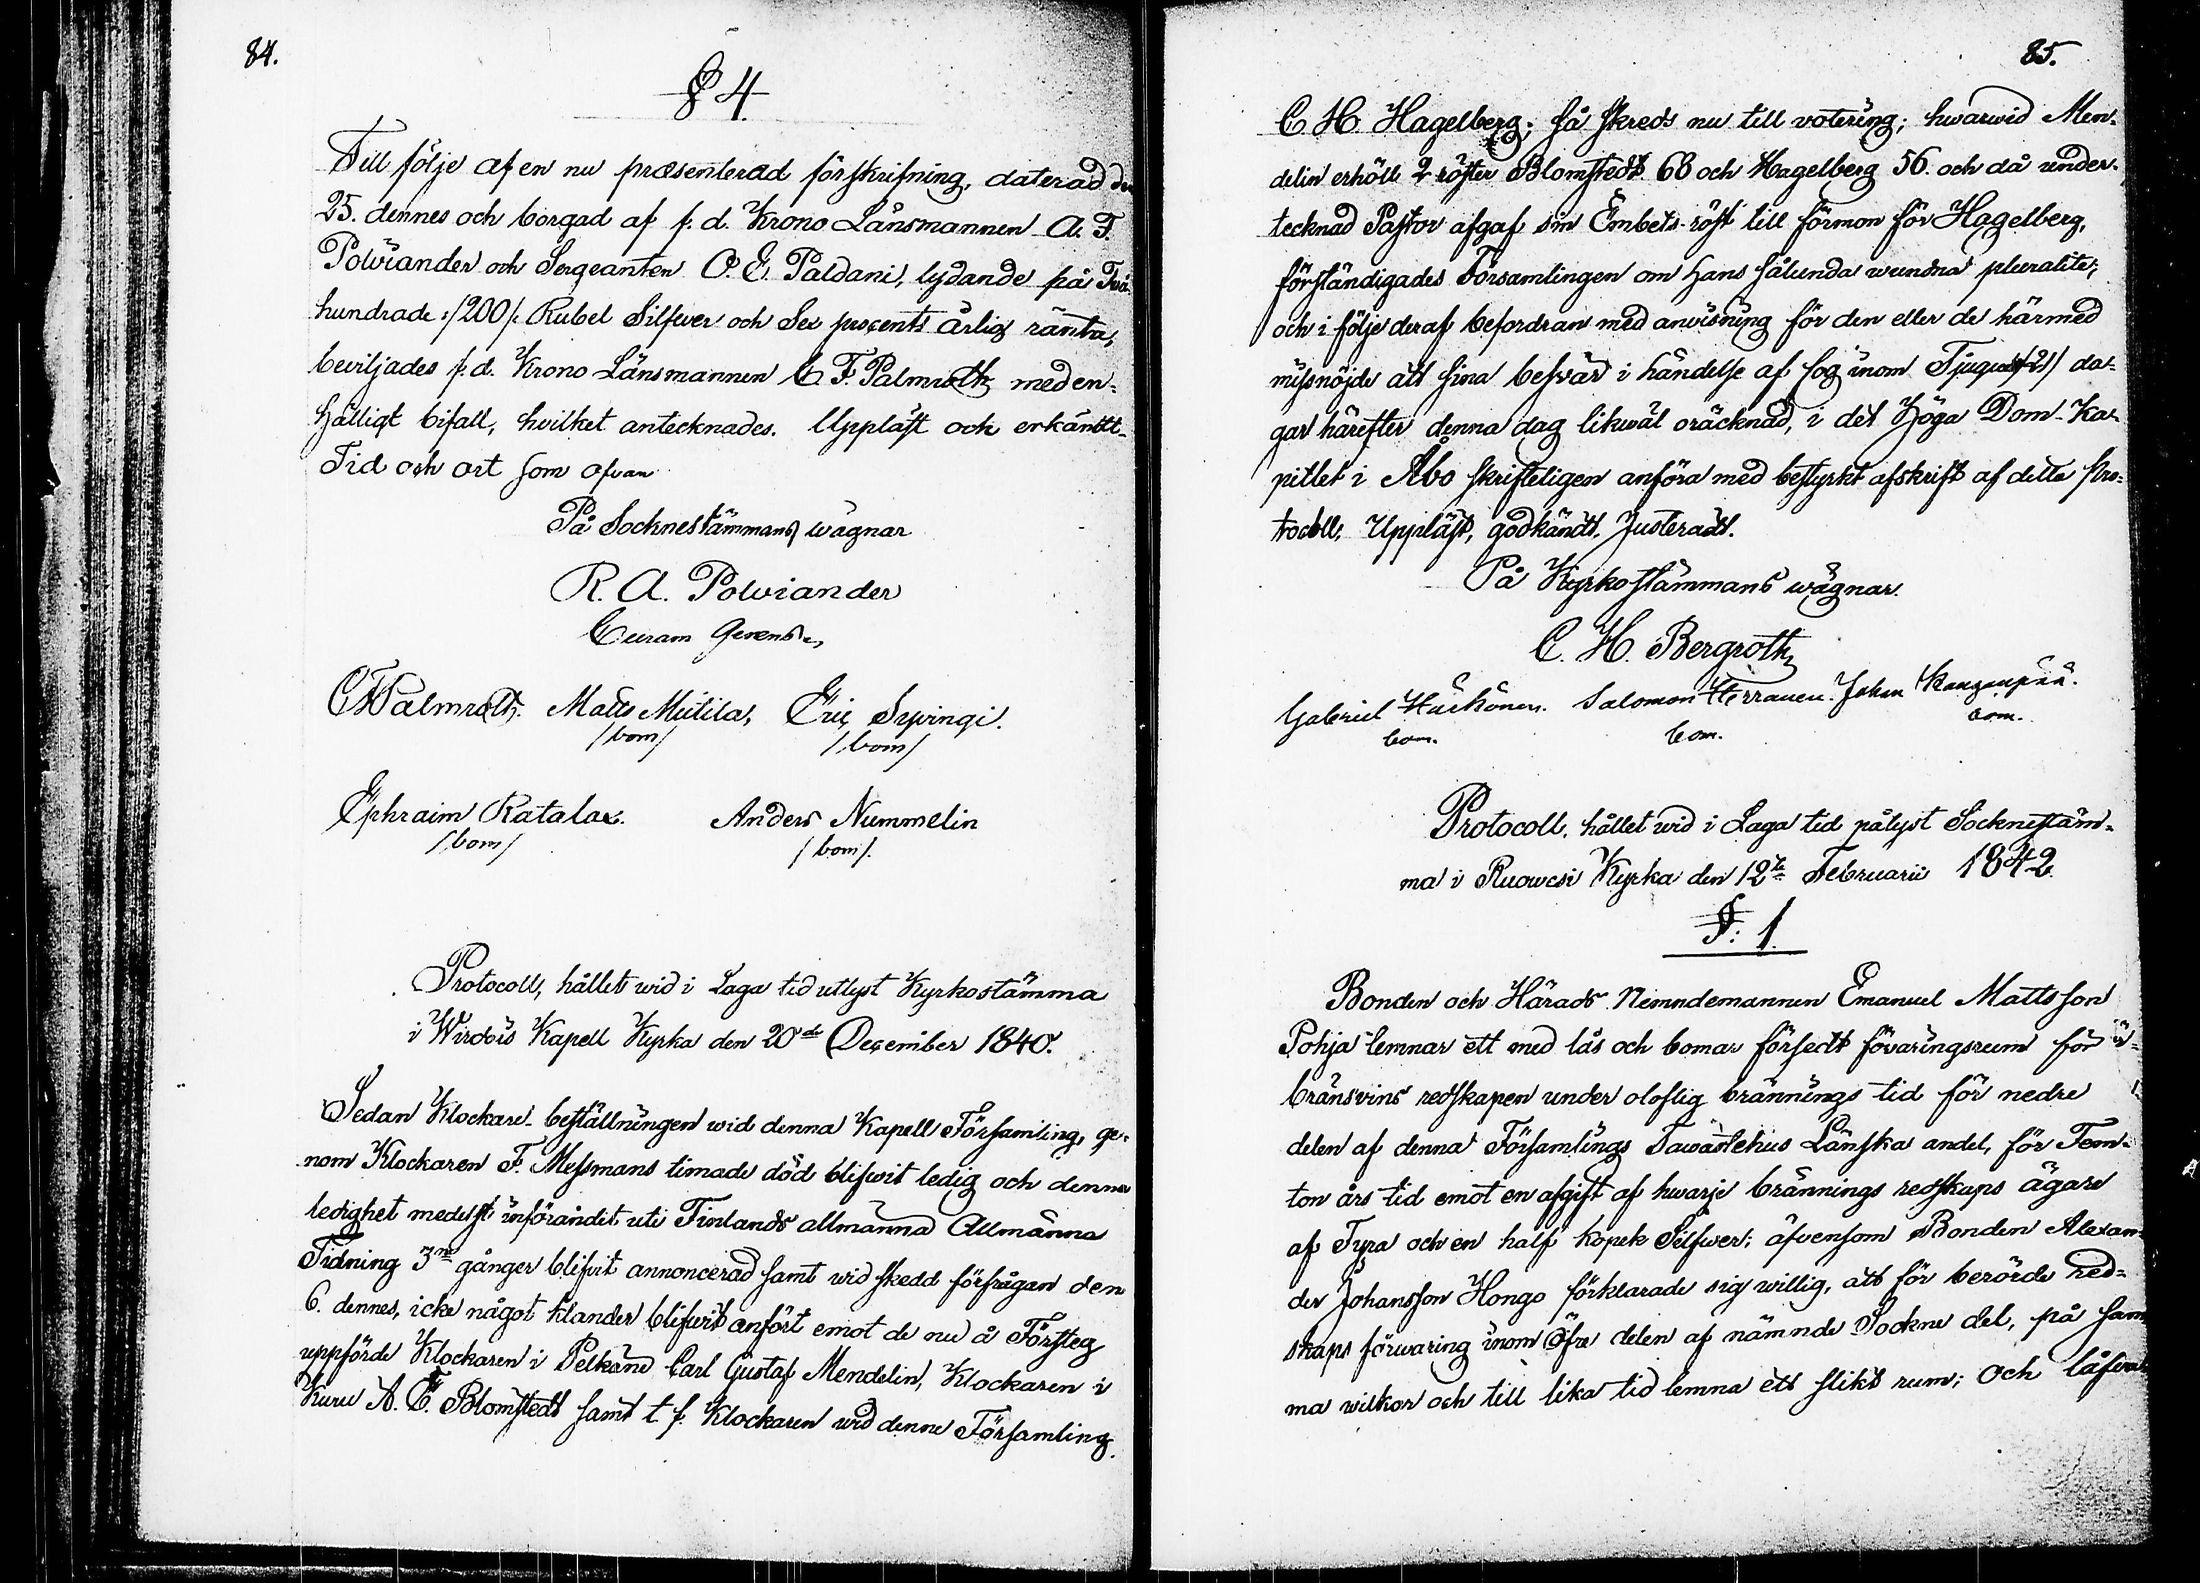 84.
§ 4.
Till följe af en nu præsenterad förskrifning, daterad den
25. dennes och borgad af f. d. Krono Länsmannen A. F.
Polviander och Sergeanten O. E. Paldani, lydande på Två
hundrade :/200/: Rubel Silfwer och Sex procents årlig ränta,
beviljades f. d. Krono Länsmannen C F. Palmroth med en-
hälligt bifall, hvilket antecknades. Uppläst och erkändt-
Tid och ort som ofvan
På Sochnestämmans wägnar
R. A. Polviander
Curam Gerens.
CF Palmroth. Matts Mutila, Eric Sypingi.
/bom/ /bom/
Ephraim Ratala. Anders Nummelin
/bom/ /bom/.
Protocoll, hållet wid i Laga tid utlyst Kyrkostämma
i Wirdois Kapell Kyrka den 20de December 1840.
Sedan Klockare-beställningen wid denna Kapell Församling, ge-
nom Klockaren F. Messmans timade död blifwit ledig och denna
ledighet medelst införandet uti Finlands allmänna Allmänna
Tidning 3ne gånger blifvit annoncerad samt wid skedd förfrågan den
6. dennes, icke något klander blifwit anfört emot de nu å Försleg
uppförde Klockaren i Pelkäne Carl Gustaf Mendelin, Klockaren i
Kuru A. E. Blomstedt samt t f. Klockaren wid denne Församling
85.
C H. Hagelberg; så skreds nu till votering; hwarwid Men-
delin erhöll 2 röster Blomstedt 68 och Hagelberg 56. och då under-
tecknad Pastor afgaf sin Embets-röst till förmon för Hagelberg,
förständigades Församlingen om hans sålunda wundna pluralite;
och i följe deraf befordran med anvisning för den eller de härmed
missnöjde att sina beswär i händelse af fog inom Tjuguett /21/ da-
gar härefter denna dag likwäl oräcknad, i det Höga Dom-Ka-
pitlet i Åbo skrifteligen anföra med bestyrkt afskrift af detta Pro-
tocoll. Uppläst, godkändt. Justeradt.
På Kyrkostämmans wägnar.
C. H. Bergroth
Gabriel Härkönen. Salomon Herranen. Johan Kangaspää.
bom. bom. bom.
Protocoll, hållet wid i Laga tid pålyst Socknestäm-
ma i Ruowesi Kyrka den 12te Februarii 1842.
§: 1.
Bonden och Härads Nämndemannen Emanuel Mattsson
Pohja lemnar ett med lås och bomar försedt förvaringsrum för
bränsvins redskapen under oloflig brännings tid för nedre
delen af denna Församlings Tawastehus Länska andel, för Fem-
ton års tid emot en afgift af hwarje brännings redskaps ägare
af Fyra och en half kopek Silfwer; äfvensom Bonden Alexan-
der Johansson Hongo förklarade sig willig, att för berörde red-
skaps förwaring inom Öfre delen af nämnde Sockne del, på sam-
ma wilkor och till lika tid lemna ett slikt rum; och